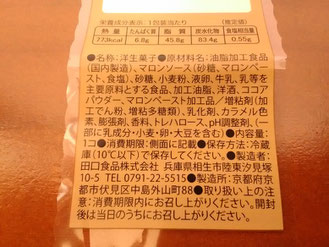 栄養成分表示 1包装当たり (推定値)
熱量 たんぱく質 脂質 炭水化物 食塩相当量
773kcal 6.8g 45.8g 83.4g 0.55g
●名称:洋生菓子●原材料名:油脂加工食品
(国内製造)、マロンソース(砂糖、マロンペー
スト、食塩)、砂糖、小麦粉、液卵、牛乳、乳等を
主要原料とする食品、加工油脂、洋酒、ココア
パウダー、マロンペースト加工品/増粘剤(加
工でん粉、増粘多糖類)、乳化剤、カラメル色
素、膨張剤、香料、トレハロース、pH調整剤、(一
部に乳成分・小麦・卵・大豆を含む)●内容量:
1コ●消費期限:側面に記載●保存方法:冷蔵
庫(10℃以下)で保存してください。●製造者:
田口食品株式会社 兵庫県相生市陸東汐見塚
10-5 TEL0791-22-5515●製造所:京都府京
都市伏見区中島外山町88●取り扱い上の注
意:消費期限内にお召し上がりください。開封
後は当日のうちにお召し上がりください。